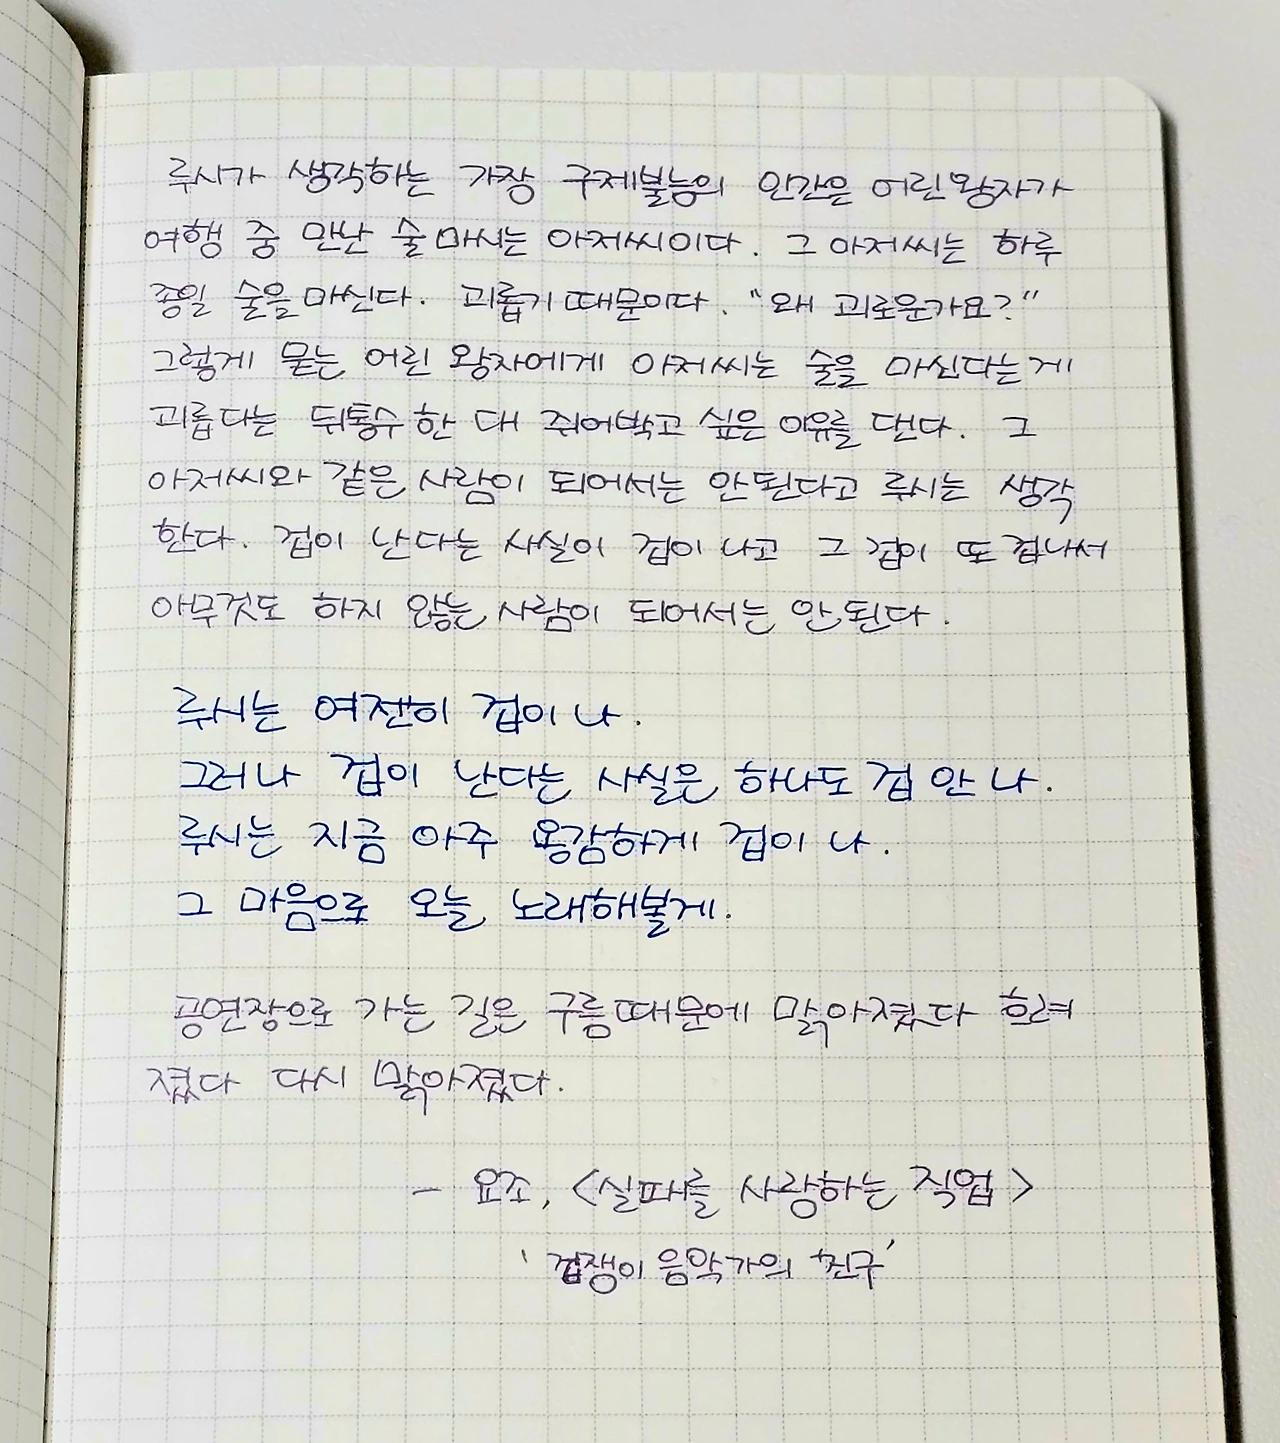 루시가 생각하는 가장 구제불능의 인간은 어린왕자가
여행 중 만난 술 마시는 아저씨이다. 그 아저씨는 하루
종일 술을 마신다. 괴롭기 때문이다. "왜 괴로운가요?"
그렇게 묻는 어린 왕자에게 아저씨는 술을 마신다는 게
괴롭다는 뒤통수 한 대 쥐어박고 싶은 이유를 댄다. 그
아저씨와 같은 사람이 되어서는 안된다고 루시는 생각
한다. 겁이 난다는 사실이 겁이 나고 그 겁이 또 겁나서
아무것도 하지 않는 사람이 되어서는 안 된다.
루시는 여전히 겁이 나.
그러나 겁이 난다는 사실은 하나도 겁 안 나.
루시는 지금 아주 용감하게 겁이 나.
그 마음으로 오늘 노래해볼게.
공연장으로 가는 길은 구름때문에 맑아졌다 흐려
졌다 다시 맑아졌다.
- 요조, <실패를 사랑하는 직업>
'겁쟁이 음악가의 친구'